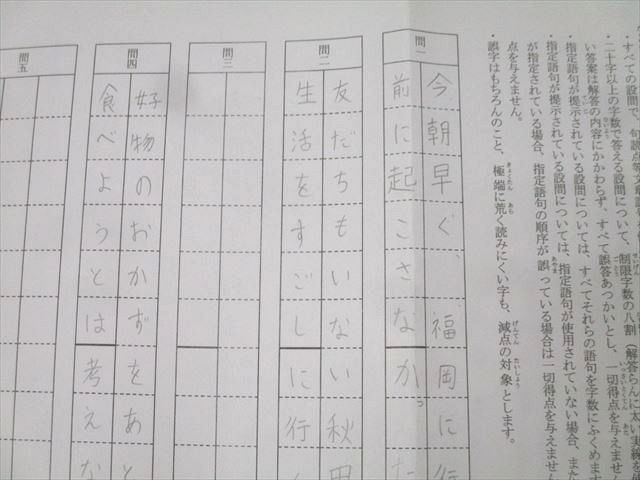 ・すべての設問で、句読点等文
・二十字以上の字数で答える設問について、制限字数の八割（解答らんに太い実線を
い答案は解答の内容にかかわらず、すべて誤答あつかいとし、一切得点を与えませ
・指定語句が提示されている設問については、すべてそれらの語句を字数にふくめま
・指定語句が提示されている設問については、指定語句が使用されていない場合、また
が指定されている場合、指定語句の順序が誤っている場合は一切得点を与えません
点を与えません。
・誤字はもちろんのこと、極端に荒く読みにくい字も、減点の対象とします。
問一
今朝早ぐ、福岡に行
前に起こさなかった
問二
友だちもいない秋田
生活をすごしに行
問三
問四
好物のおかずをあと
食べようとは考えな
問五